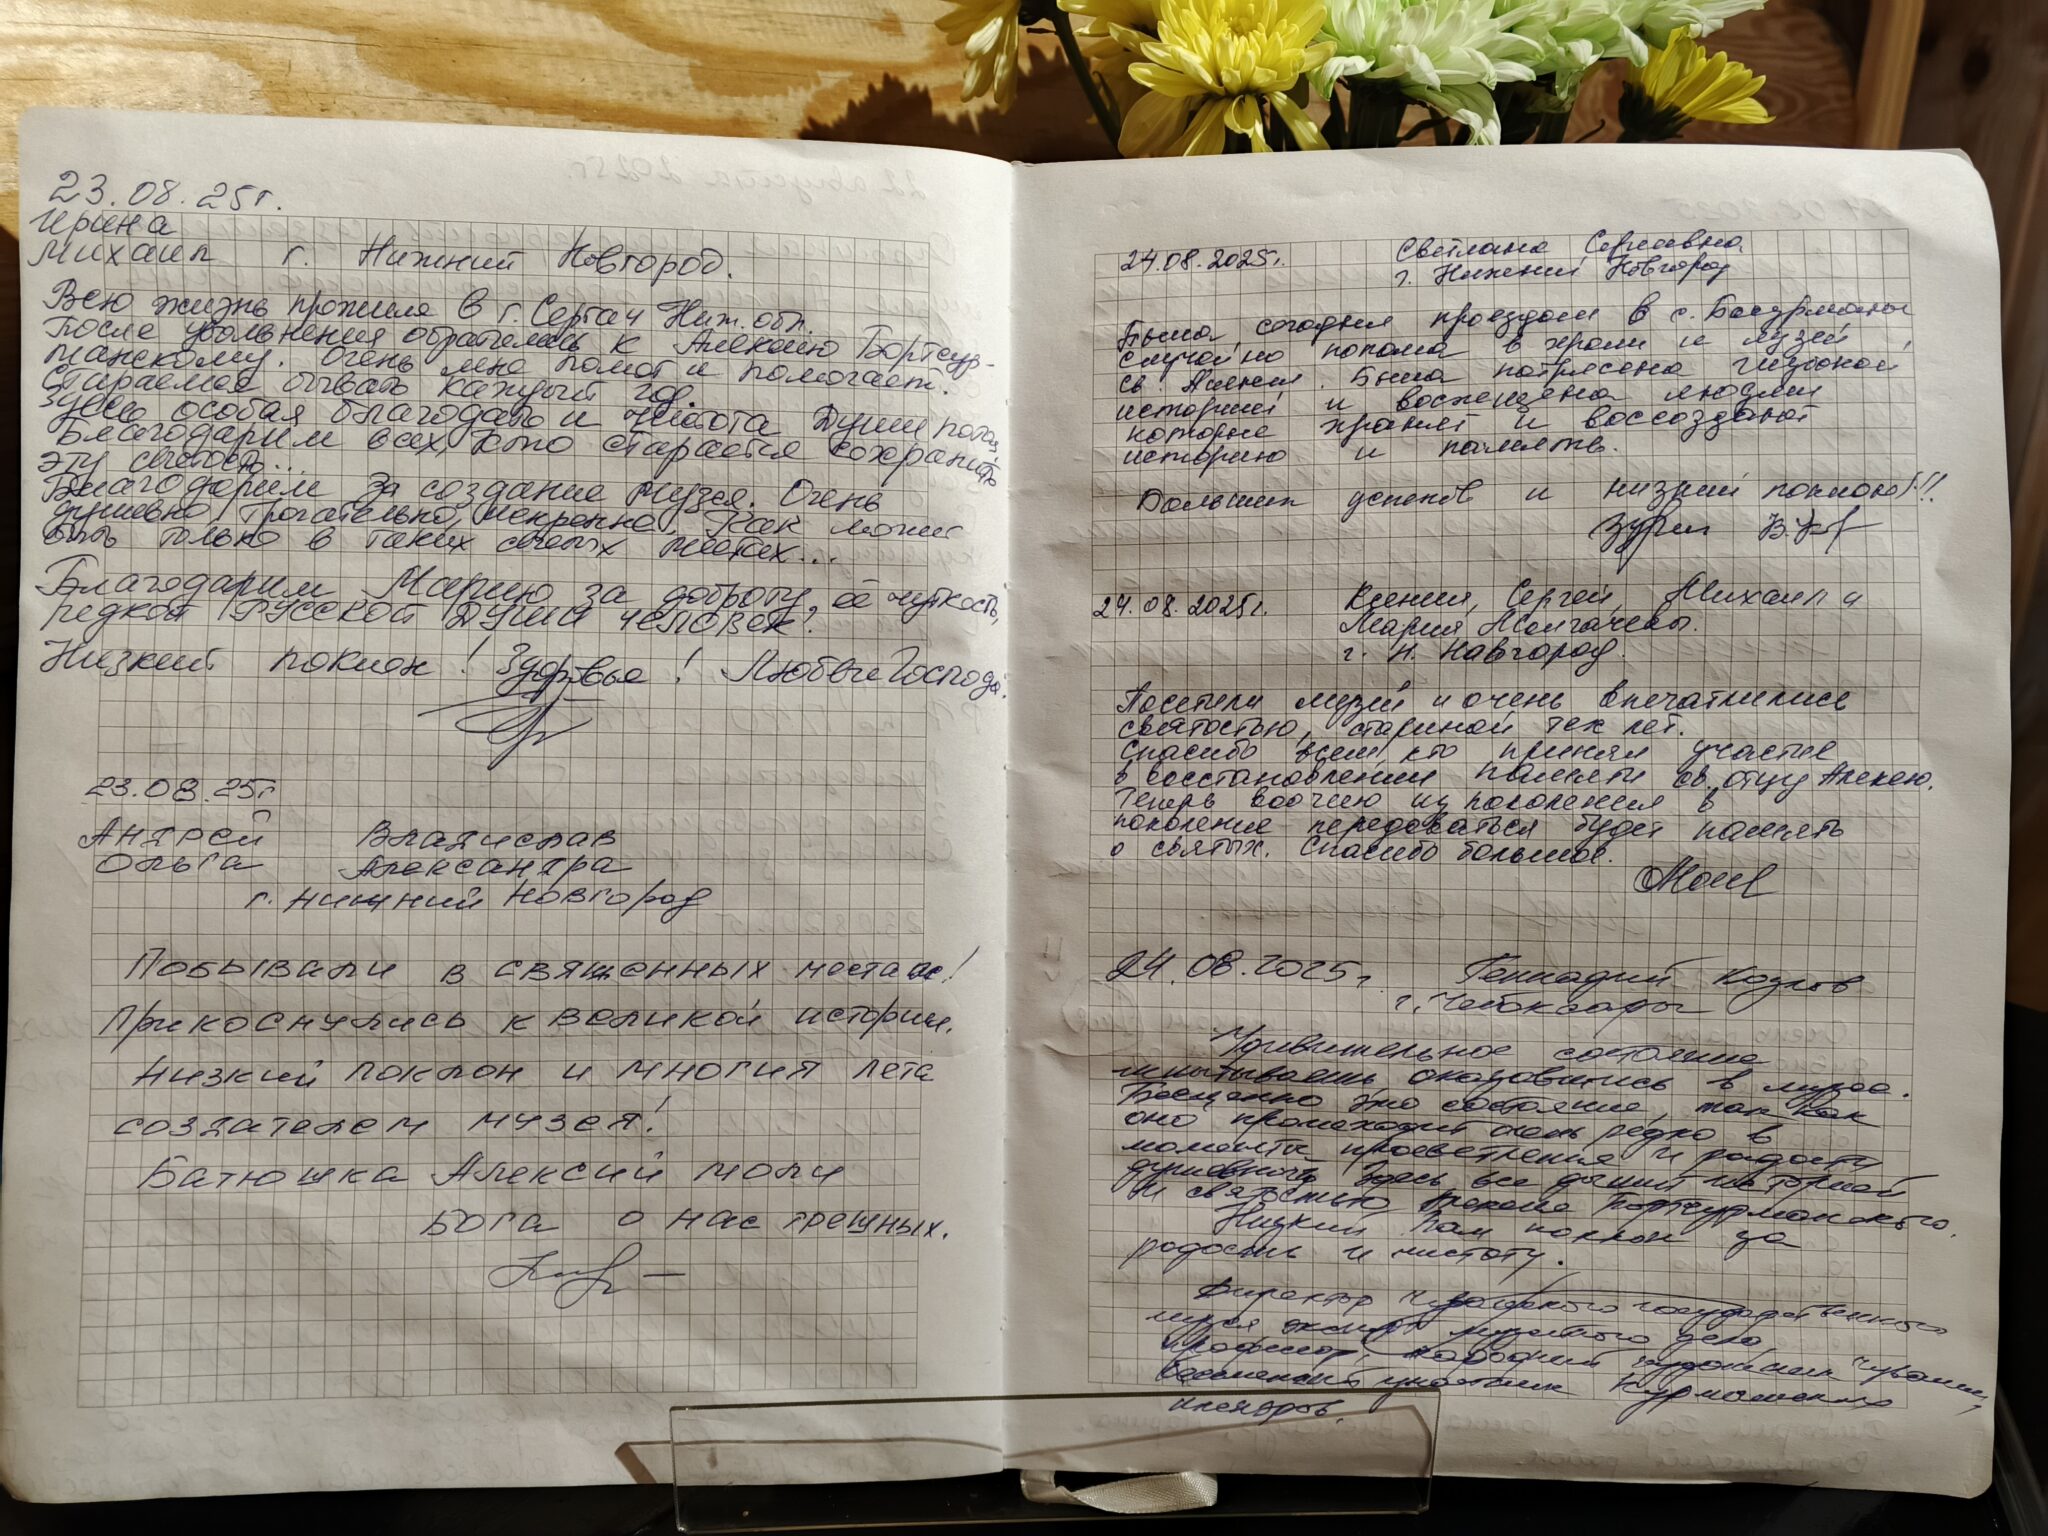 23.08.25г.
Ирина
Михаил г. Нижний Новгород.
Всю жизнь прожила в г. Сергач Ниж. обл.
После увольнения обратилась к Алексию Бортсур-
манскому. Очень мне помог и помогает.
Стараемся бывать каждый год.
Здесь особая благодать и чистота Души
Благодарим всех, кто старается сохранить
эту святость...
Благодарим за создание музея. Очень
душевно, трогательно, искренно. Как может
быть только в таких святых местах...
Благодарим Марию за доброту, её чуткость,
редкой РУССКОЙ ДУШИ ЧЕЛОВЕК!
Низкий поклон! Здоровье! Любви Господа!
23.08.25г
Андрей Владислав
Ольга Александра
г. Нижний Новгород
Побывали в священных местах!
Прикоснулись к великой истории.
Низкий поклон и многия лета
создателем музея!
Батюшка Алексий моли
Бога о нас грешных.
24.08.2025г. Светлана Сергеевна
г. Нижний Новгород
Была сегодня проездом в с. Басурманы
случайно попала в храм и музей
св Алексия. Была потрясена глубокой
историей и восхищена людьми
которые хранят и воссоздают
историю и память.
Больших успехов и низкий поклон!!!
24.08.2025г. Ксения, Сергей, Михаил и
Мария
г. Н. Новгород.
Посетили музей и очень впечатлились
святостью, стариной тех лет.
Спасибо всем, кто принял участие
в восстановлении памяти св. отцу Алексею.
Теперь воочию из поколения в
поколение передоваться будет память
о святых. Спасибо большое.
24.08.2025г. Геннадий Козлов
г. Чебоксары
Удивительное состояние
испытываешь оказавшись в музее.
Бесценно это состояние, так как
оно происходит очень редко в
моменты просветления и радости
душевной. Здесь все дышит историей
и святостью Алексея Бортсурманского.
Низкий Вам поклон за
радость и чистоту.
Директор Чувашского государственного
музея эксперт музейного дела
профессор, народный художник Чувашии,
участник Курмышских
пленэров.